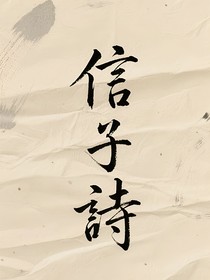 信子詩